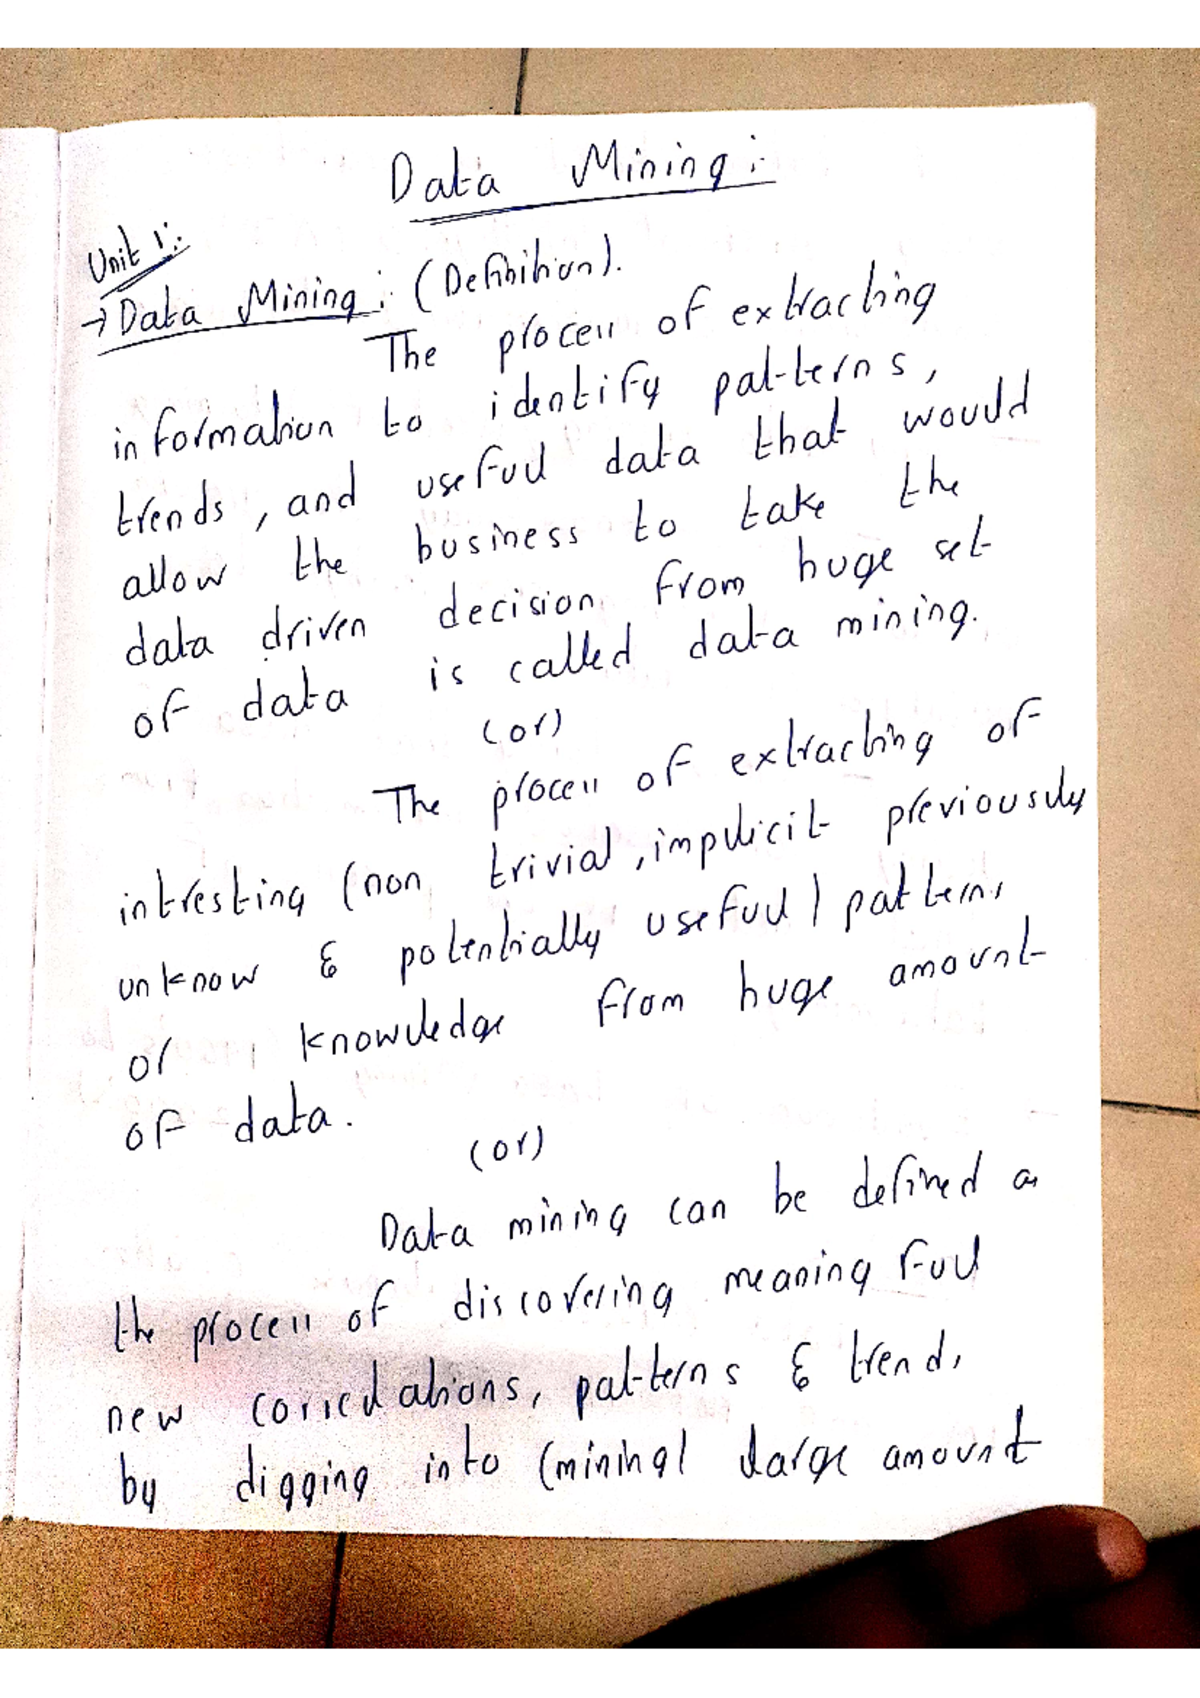 Data Mining :-
Unit 1:-
→ Data Mining :- (Definition).
The process of extracting
information to identify patterns,
trends, and useful data that would
allow the business to take the
data driven decision from huge set
of data is called data mining.
(or)
The process of extracting of
intresting (non trivial, implicit previously
unknow & potentially useful) patterns
or knowledge from huge amount
of data.
(or)
Data mining can be defined as
the process of discovering meaning ful
new corrielations, patterns & trends
by digging into (mining) large amount